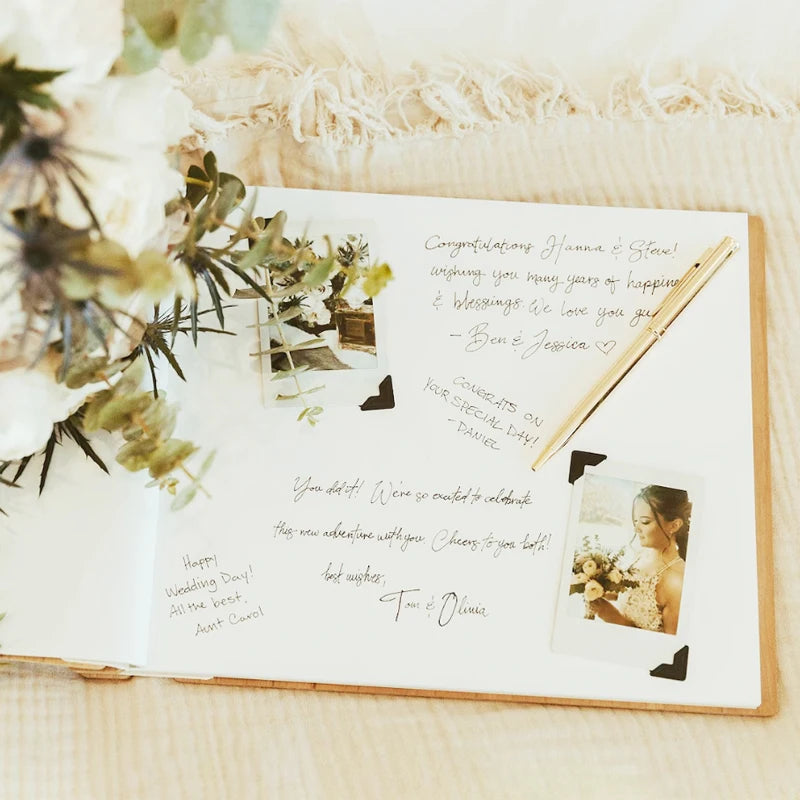 Congratulations Hanna & Steve!
wishing you many years of happine
& blessings. We love you gu
- Ben & Jessica ♡
CONGRATS ON
YOUR SPECIAL DAY!
- DANIEL
You did it! We're so excited to celebrate
this new adventure with you. Cheers to you both!
best wishes,
Tom & Olivia
Happy
Wedding Day!
All the best,
Aunt Carol